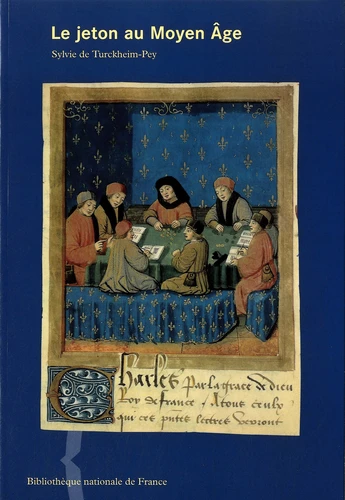 Le jeton au Moyen Âge
Sylvie de Turckheim-Pey
Charles Par la grace de dieu
Roy de france . A tous ceulx
qui ces pntes lectres verront
Bibliothèque nationale de France